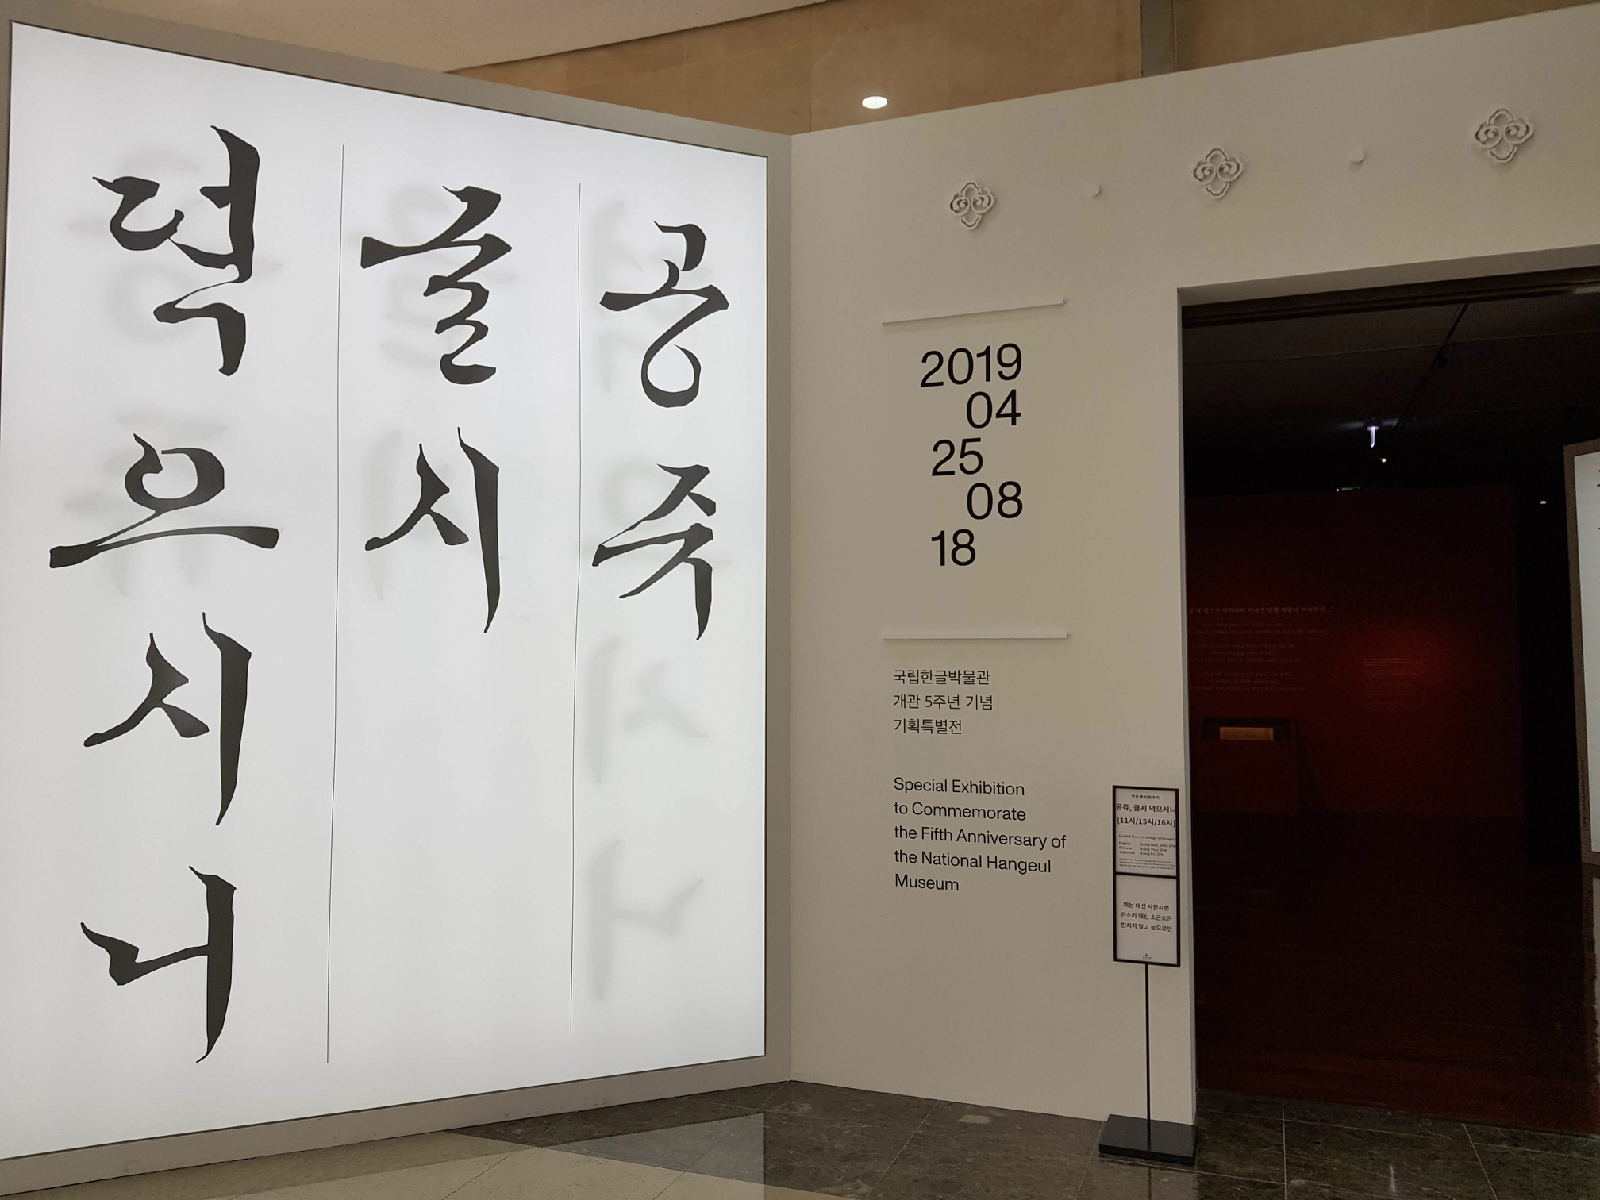 공쥬
글시
뎍으시니
2019
04
25
08
18
국립한글박물관
개관 5주년 기념
기획특별전
Special Exhibition
to Commemorate
the Fifth Anniversary of
the National Hangeul
Museum
공쥬, 글시 뎍으시니
[11시/15시/16시]
뛰는 대신 사뿐사뿐
큰 소리 대신 소곤소곤
만지지 말고 눈으로만